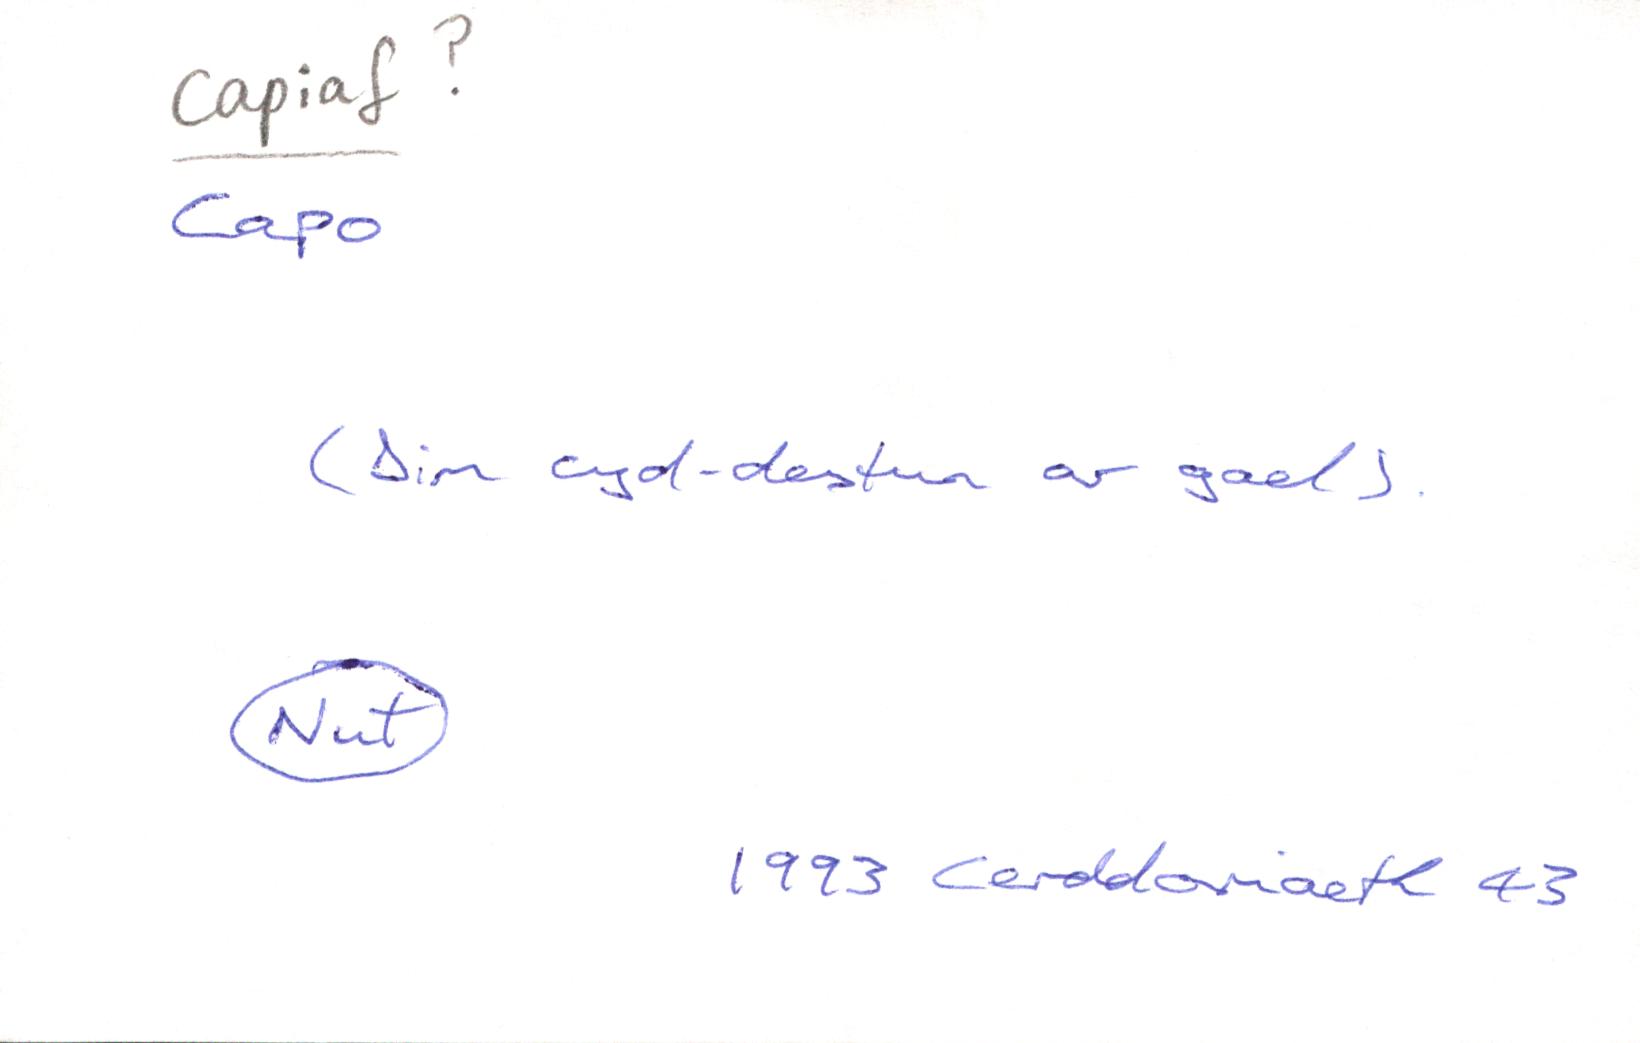 capiaf?
Capo
(Dim cyd-destun ar gael).
Nut
1993 Cerddoriaeth 43